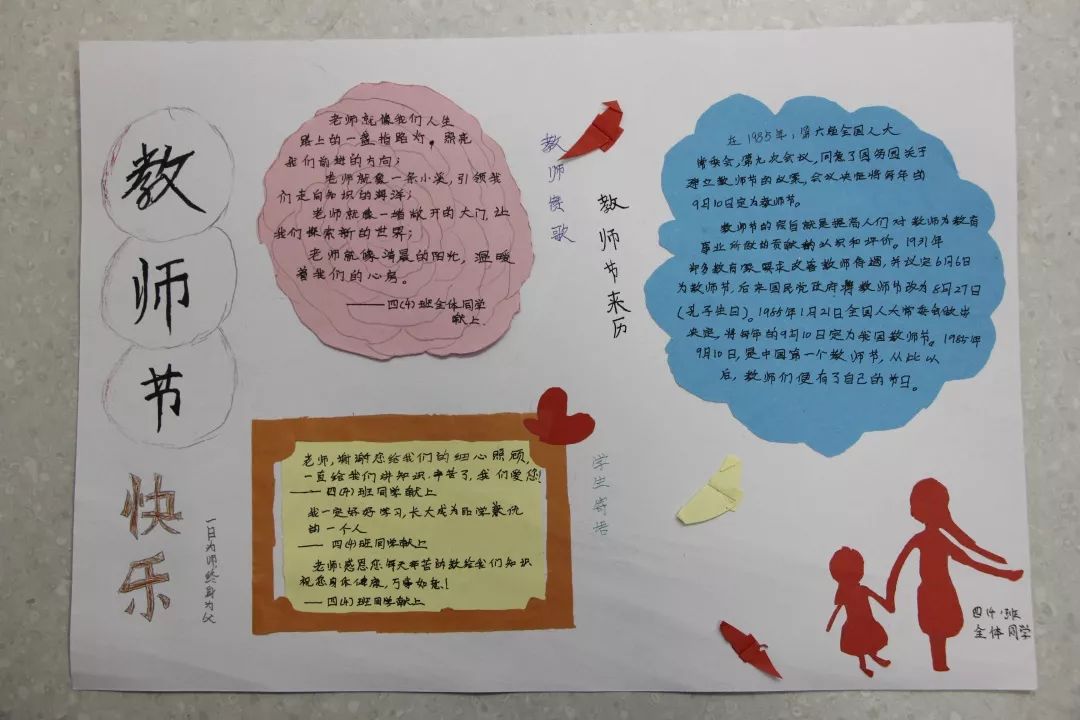 教师节
快乐
一日为师终身为父
教师赞歌
老师就像我们人生
路上的一盏指路灯，照亮
我们前进的方向；
老师就像一条小溪，引领我
们走向知识的海洋；
老师就像一扇敞开的大门，让
我们探索新的世界；
老师就像清晨的阳光，温暖
着我们的心房。
——四(4)班全体同学
献上
教师节来历
在1985年，第六届全国人大
常委会，第九次会议，同意了国务园关于
建立教师节的议案，会议决定将每年的
9月10日定为教师节。
教师节的宗旨就是提高人们对教师为教育
事业所做的贡献的认识和评价。1931年
许多教育家要求改善教师待遇，并议定6月6日
为教师节，后来国民党政府将教师节改为8月27日
(孔子生日)。1985年1月21日全国人大常委会做出
决定，将每年的9月10日定为我国教师节。1985年
9月10日，是中国第一个教师节，从此以
后，教师们便有了自己的节日。
学生寄语
老师，谢谢您给我们的细心照顾，
一直给我们讲知识，辛苦了，我们爱您!
——四(4)班同学献上
我一定好好学习，长大成为品学兼优
的一个人
——四(4)班同学献上
老师：感恩您每天辛苦的教给我们知识
祝您身体健康，万事如意！
——四(4)班同学献上
四(4)班
全体同学